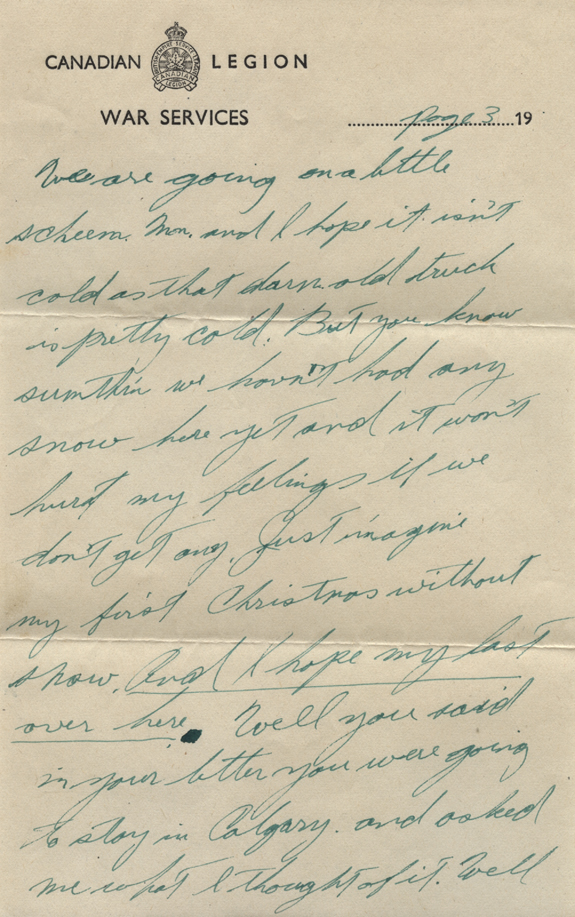 CANADIAN LEGION
WAR SERVICES
page 3 19
We are going on a little
scheem. Mon. and I hope it isn't
cold as that darn old truck
is pretty cold. But you know
sumthin we havn't had any
snow here yet and it won't
hurt my feelings if we
don't get any. Just imagine
my first Christmas without
snow. And I hope my last
over here. Well you said
in your letter you were going
to stay in Calgary. and asked
me what I thought of it. Well